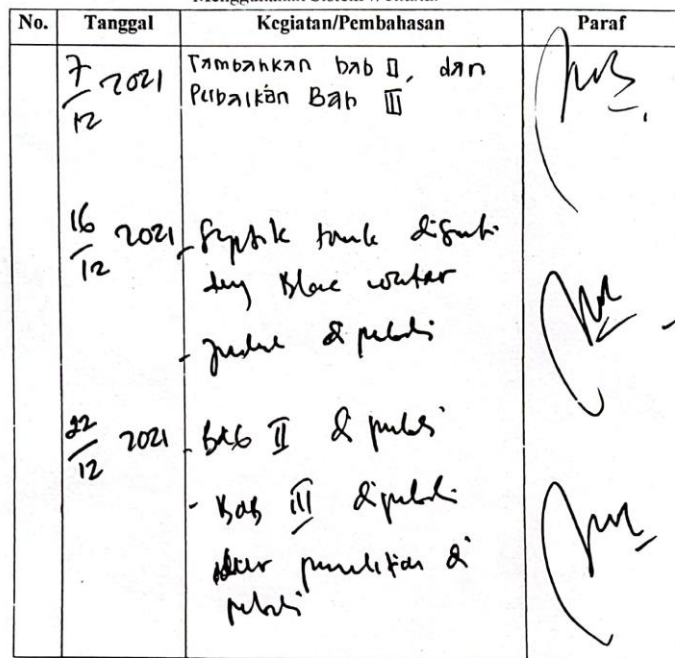 No. Tanggal Kegiatan/Pembahasan Paraf
7/12 2021 Tambahkan bab II, dan
Perbaikan Bab III
16/12 2021 - Septik tank diganti
dng Blac water
- Judul di perbaiki
22/12 2021 - Bab II di perbaiki
- Bab III diperbaiki
penelitian di
perbaiki